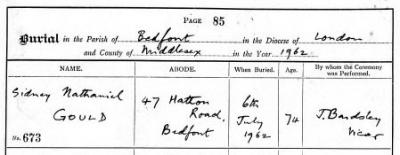 PAGE 85
Burial in the Parish of Bedfont in the Diocese of London
and County of Middlesex in the Year 1962
NAME. ABODE. When Buried. Age. By whom the Ceremony was Performed.
Sidney Nathaniel GOULD 47 Hatton Road, Bedfont 6th July 1962 74 J. Bardsley Vicar
No. 673